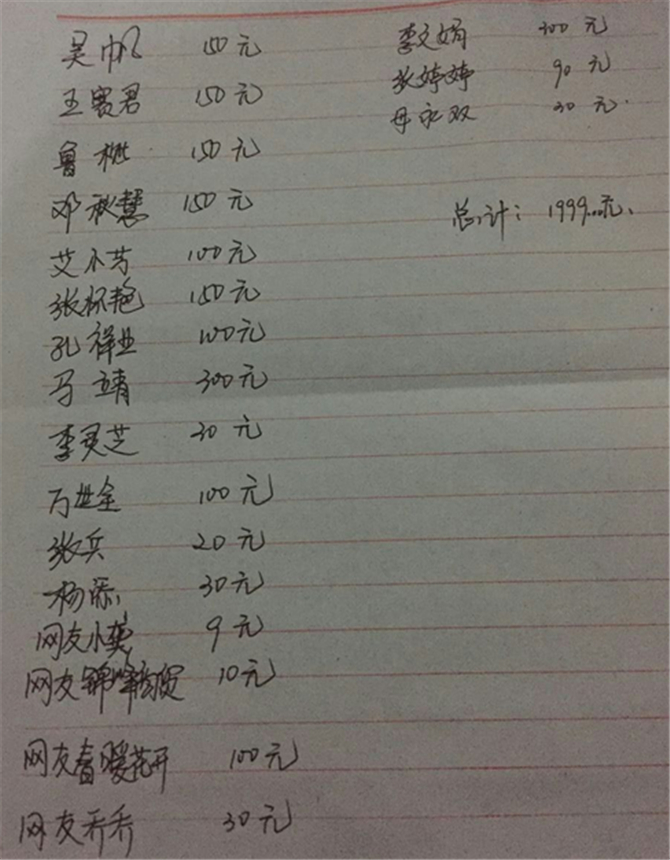 吴帆 150元
王赛君 150元
鲁 150元
邓秋慧 150元
艾小芳 100元
张怀艳 150元
孔祥业 100元
马靖 300元
李灵芝 30元
万世全 100元
张兵 20元
杨添 30元
网友小龚 9元
网友锦峰 10元
网友春暖花开 100元
网友乔乔 30元
李文娟 300元
张婷婷 90元
母永双 30元
总计：1999.00元.